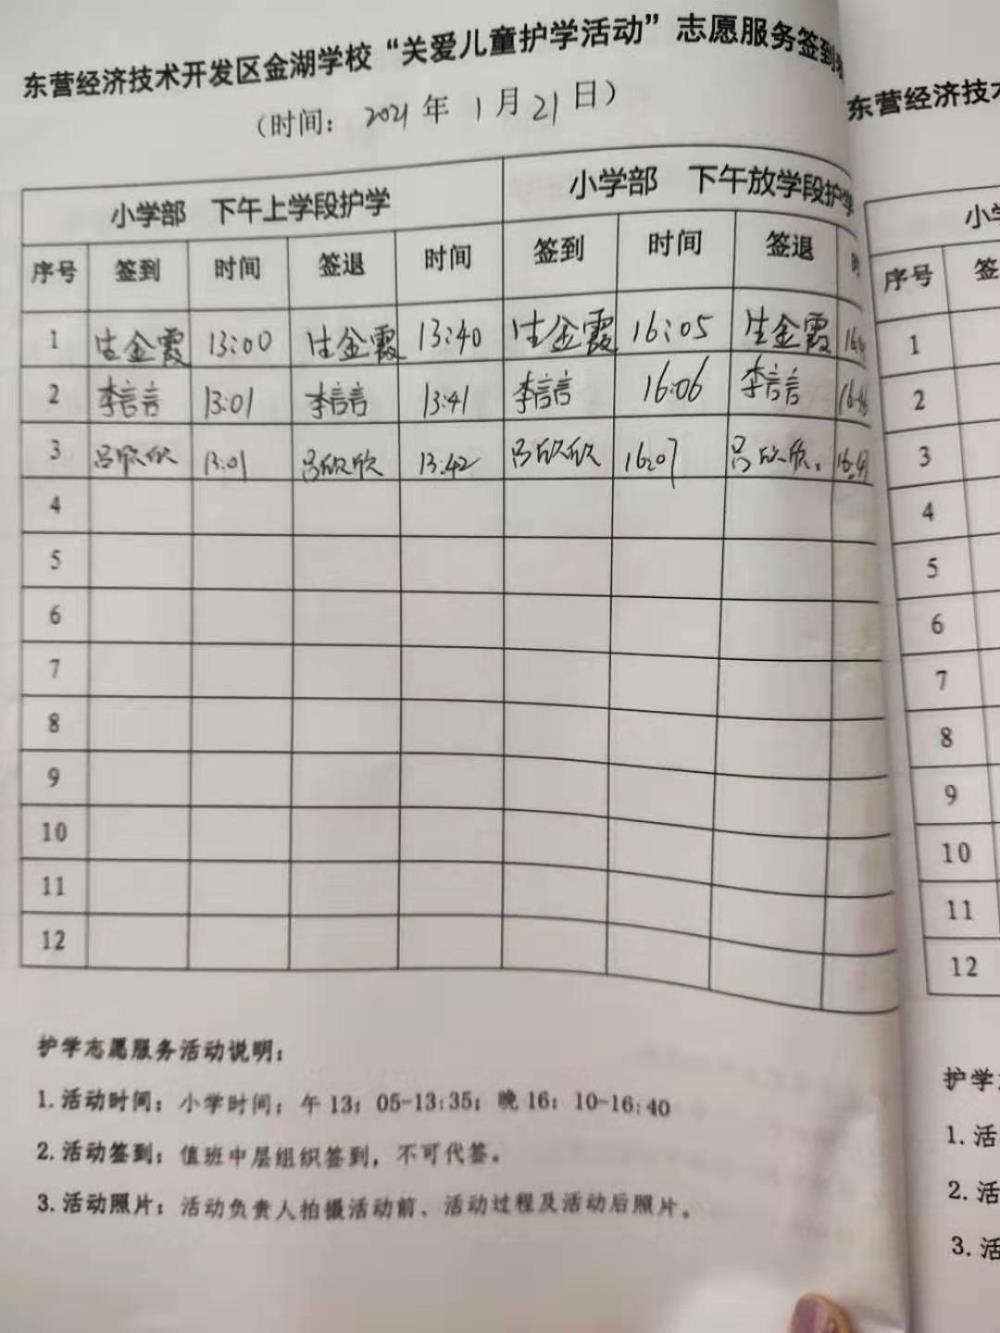 东营经济技术开发区金湖学校“关爱儿童护学活动”志愿服务签到
（时间：2021年1月21日）
小学部 下午上学段护学 小学部 下午放学段护学
序号 签到 时间 签退 时间 签到 时间 签退 时
1 生金霞 13:00 生金霞 13:40 生金霞 16:05 生金霞
2 李言言 13:01 李言言 13:41 李言言 16:06 李言言 16:46
3 吕欣欣 13:01 吕欣欣 13:42 吕欣欣 16:07 吕欣欣 16:47
4
5
6
7
8
9
10
11
12
护学志愿服务活动说明：
1.活动时间：小学时间：午13：05-13:35；晚16：10-16:40
2.活动签到：值班中层组织签到，不可代签。
3.活动照片：活动负责人拍摄活动前、活动过程及活动后照片。
东营经济技
小学
序号 签
1
2
3
4
5
6
7
8
9
10
11
12
护学
1.活
2.活
3.活